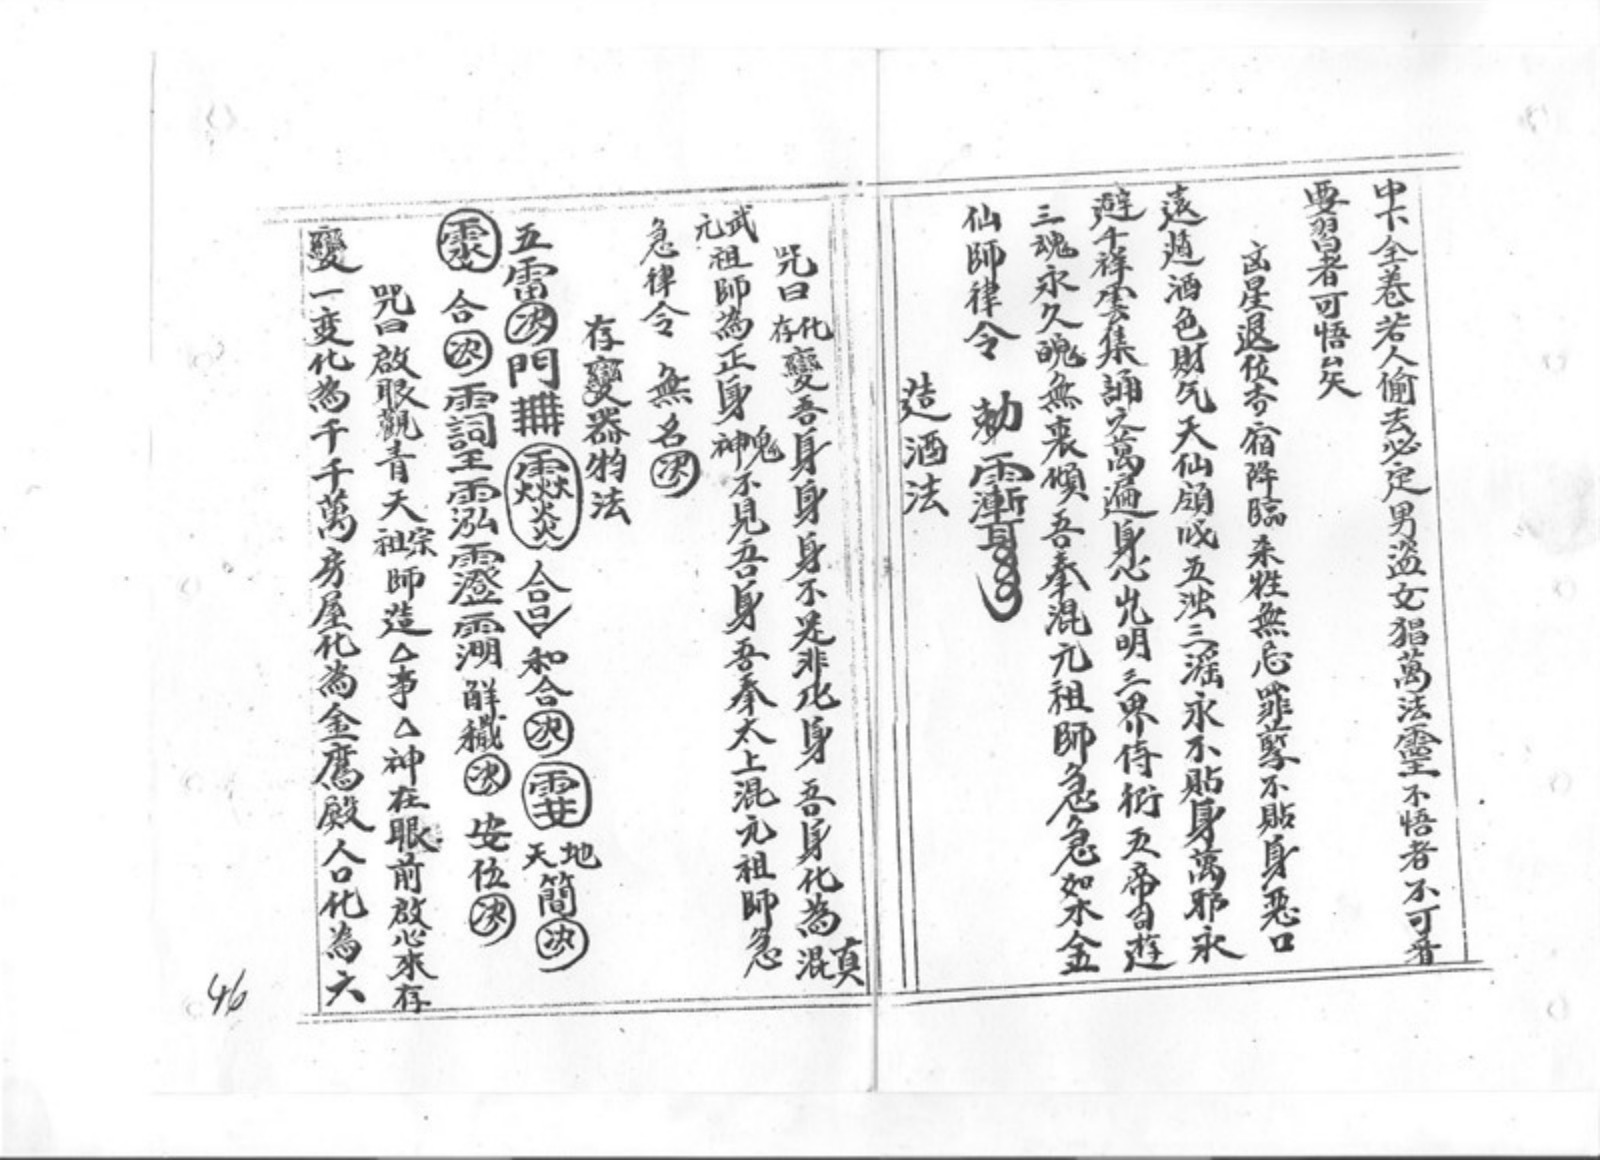 中下全卷若人偷去必定男盜女猖萬法靈不悟者不可看
要習者可悟矣
凶星退位奇宿降臨杀牲無忌罪孽不貼身惡口
遠酒色財氕天仙領成五浊三滛永不貼身萬邪永
避千祥雲集誦之萬遍身心光明三界侍衛五帝自遊
三魂永久魄無衰傾吾奉混元祖師急急如水金
仙師律令 勅
造酒法
咒曰存化變吾身身身不是非凡身吾身化為混真
元武祖師為正身神鬼不見吾身吾奉太上混元祖師急
急律令 無名決
存變器物法
五雷決門 合 和合決 天地簡決
合決 解穢決 安位決
咒曰啟眼觀青天祖宗師造厶事厶神在眼前啟心來存
變一变化為千千萬房屋化為金鳫殿人口化為六
46